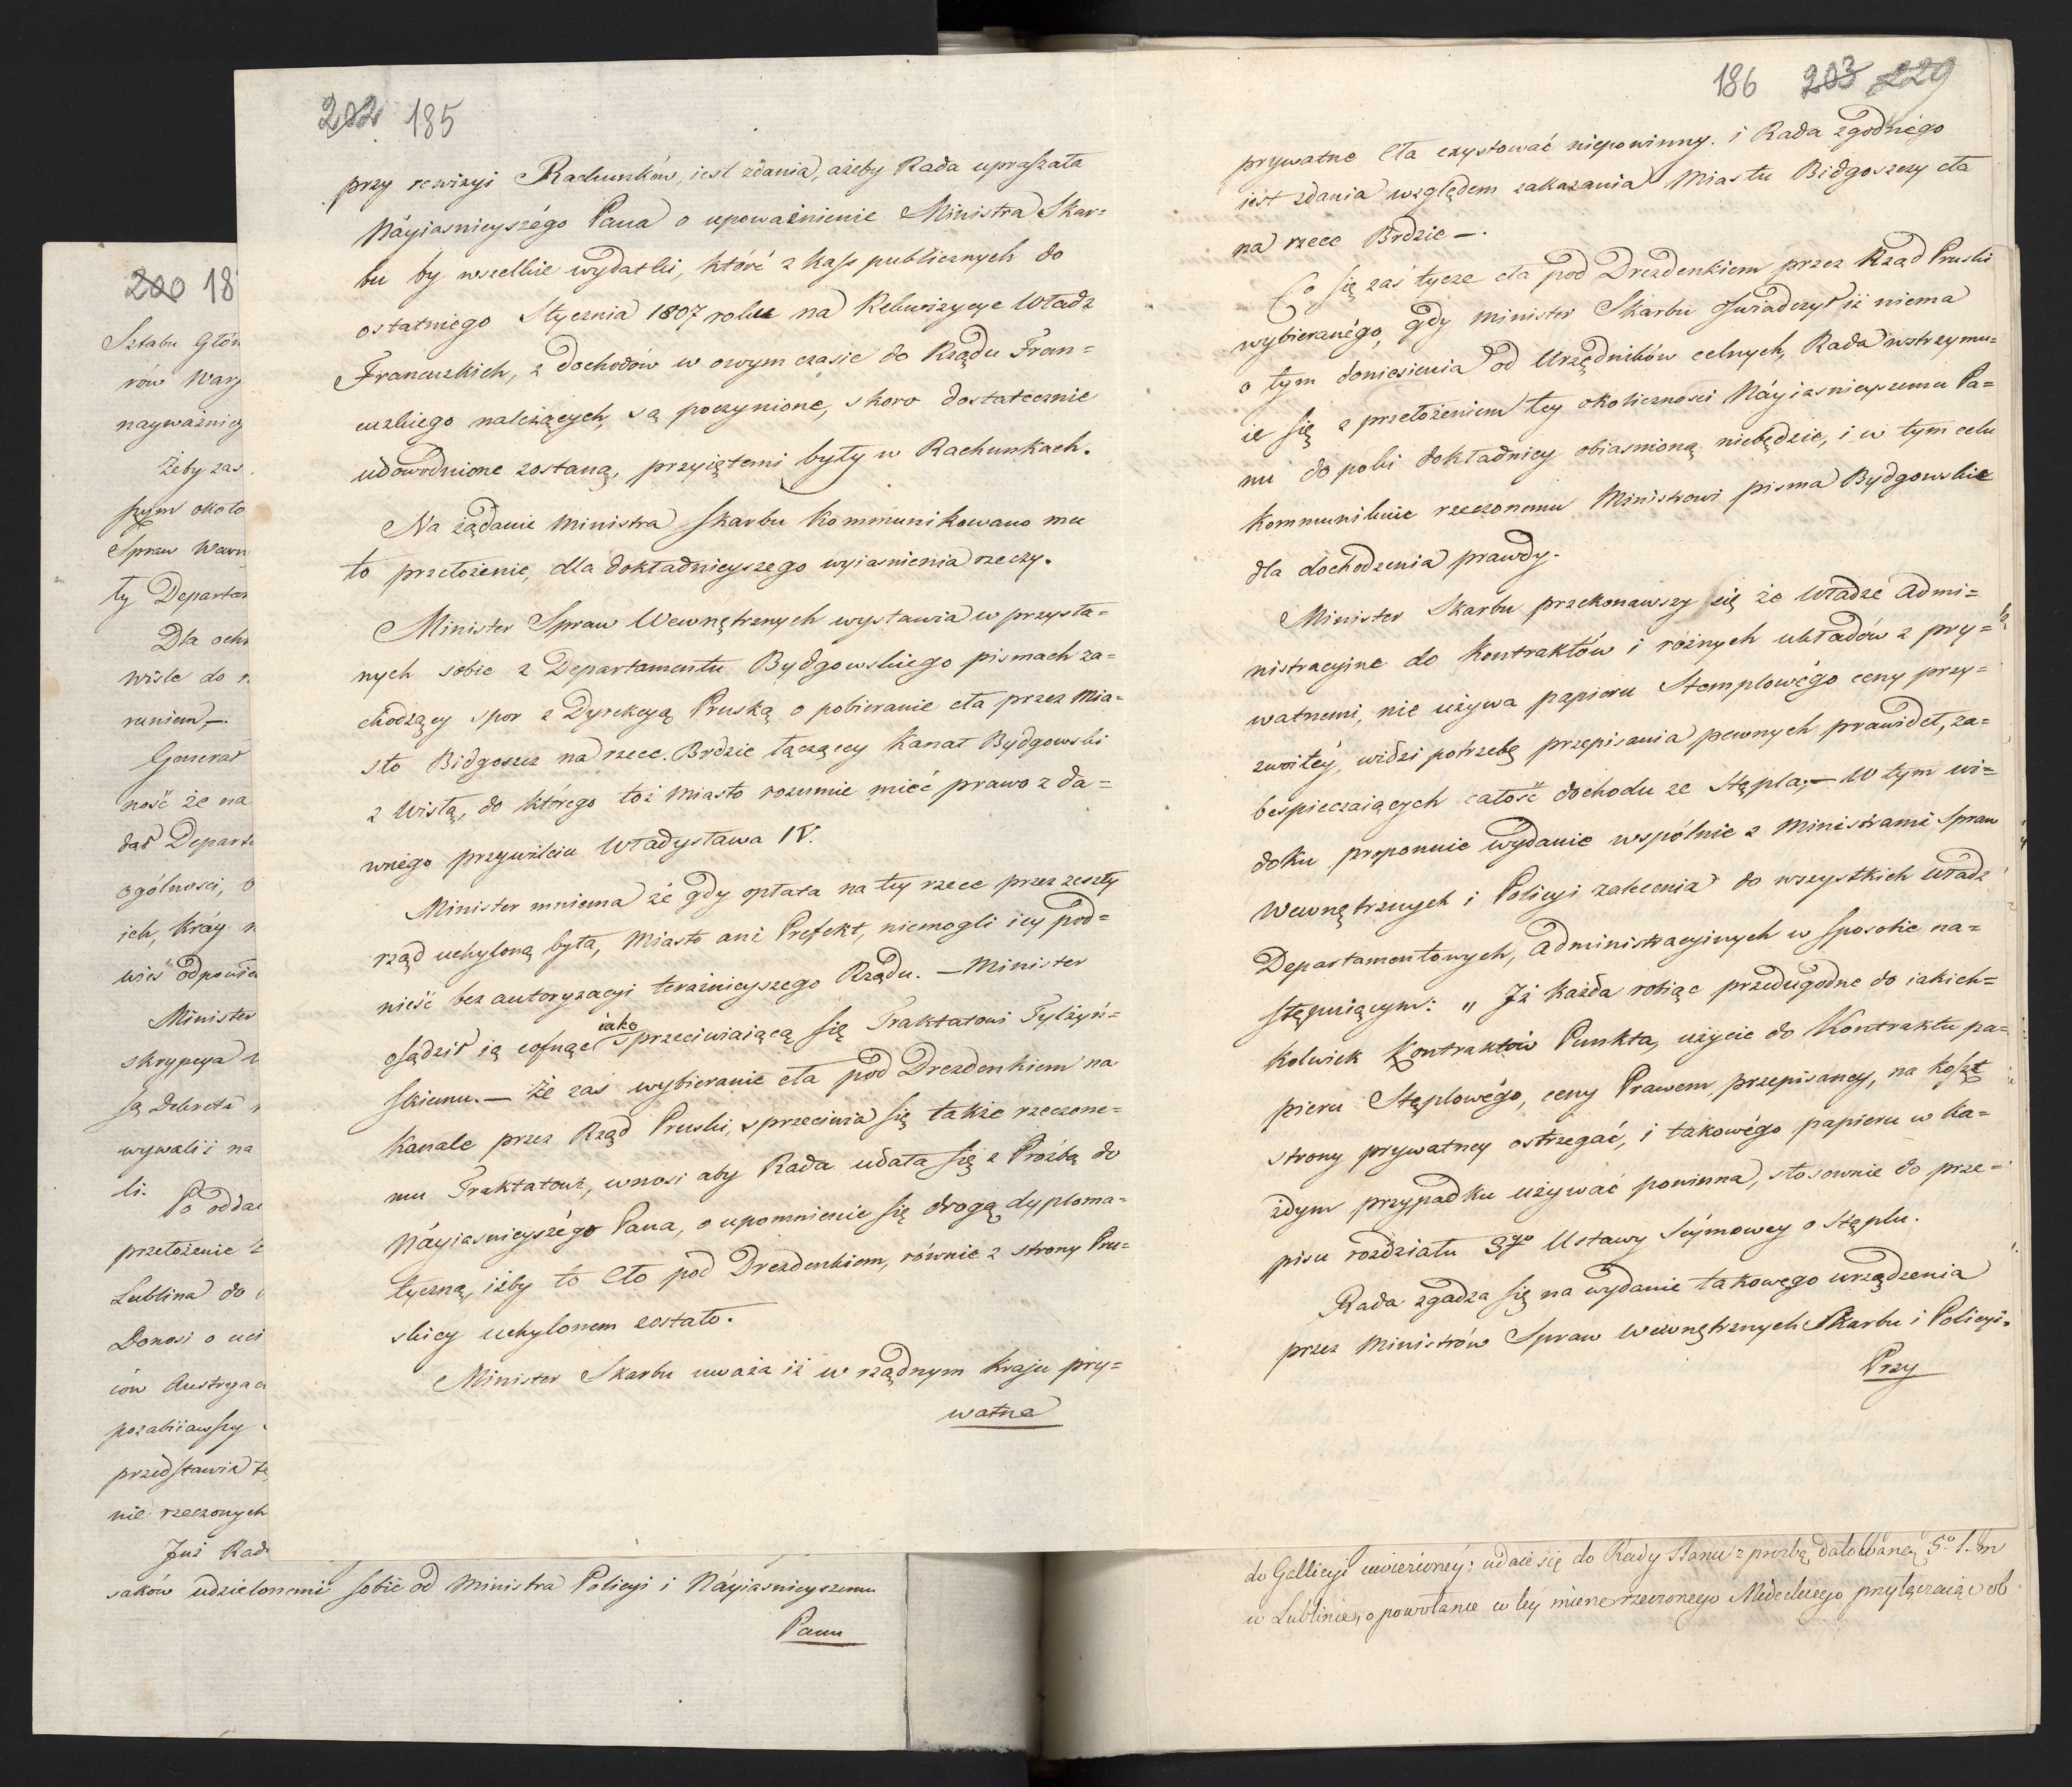 202 185
przy rewizyi Rachunków, iest zdania, ażeby Rada upraszała
Náyiasnieyszégo Pana o upoważnienie Ministra Skar=
bu by wszelkie wydatki, któré z kass publicznych do
ostatniego Stycznia 1807 roku na Rekwizycye Władz
Francuzkich, z dochodów w owym czasie do Rządu Fran=
cuzkiego należących, są poczynione, skoro dostatecznie
udowodnione zostaną, przyiętemi były w Rachunkach.
Na żądanie Ministra Skarbu Kommunikowano mu
to przełożenie, dla dokładnieyszego wyiasnienia rzeczy.
Minister Spraw Wewnętrznych wystawia w przysła=
nych sobie z Departamentu Bydgowskiego pismach za=
chodzący spor z Dyrekcyą Pruską o pobieranie cła przez Mia=
sto Bidgoszcz na rzece Brdzie łączący Kanał Bydgowski
z Wisłą, do którego toż Miasto rozumie mieć prawo z da=
wnégo przywileiu Władysława IV.
Minister mniema że gdy opłata na tey rzece przez zeszły
rząd uchyloną była, Miasto ani Prefekt, niemogli iey pod=
nieść bez autoryzacyi teraznieyszego Rządu. — Minister
osądził ią cofnąć iako sprzeciwiaiącą się Traktatowi Tylżyń=
skiemu. — Że zaś wybieranie cła pod Drezdenkiem na
Kanale przez Rząd Pruski, sprzeciwia się także rzeczone=
mu Traktatowi, wnosi aby Rada udała się z Proźbą do
Náyiasnieyszégo Pana, o upomnienie się drogą dyploma=
tyczną, iżby to Cło pod Drezdenkiem, równie z strony Pru=
skiey uchylonem zostało.
Minister Skarbu uważa iż w rządnym kraju pry=
watne
186 203 229
prywatne Cła exystować niepowinny. i Rada zgodnégo
iest zdania względem zakazania Miastu Bidgoszczy cła
na rzece Brdzie —.
Co się zaś tycze cła pod Drezdenkiem przez Rząd Pruski
wybieranégo, gdy Minister Skarbu oświadczył iż niema
o tym doniesienia od Urzędników celnych, Rada wstrzymu=
ie się z przełożeniem tey okoliczności Náyiasnieyszemu Pa=
nu dopoki dokładniey obiasnioną niebędzie, i w tym celu
Kommunikuie rzeczonemu Ministrowi pisma Bydgowskie
dla dochodzenia prawdy.
Minister Skarbu przekonawszy się że Władze Admi=
nistracyjne do Kontraktów i różnych układów z pry=
watnemi, nie używa papieru Stemplowégo ceny przy=
zwoitéy, widzi potrzebę przepisania pewnych prawideł, za=
bespieczaiących całość dochodu ze Stępla; — W tym wi=
doku proponuie wydanie wspólnie z Ministrami Spraw
Wewnętrznych i Policyi zalecenia do wszystkich Władz
Departamentowych, Administracyinych w sposobie na=
stępuiącym: „ Iż każda robiąc przedugodne do iakich=
kolwiek Kontraktów Punkta, użycie do Kontraktu pa=
pieru Stęplowégo, ceny Prawem przepisaney, na koszt
strony prywatney ostrzegać, i takowégo papieru w ka=
żdym przypadku używać powinna, stosownie do prze=
pisu rozdziału 3go Ustawy Seymowey o Stęplu.
Rada zgadza się na wydanie takowego urządzenia
przez Ministrów Spraw Wewnętrznych Skarbu i Policyi.
Przy
200 18
Sztabu Głów
rów Warz
nayważniey
Żeby zas
szym około
Spraw Wewn
ty Departam
Dla ochr
wisle do
runiem —.
Generał
ność że na
dał Departa
ogólnosci, o
ich, Kráy n
wiet odpowied
Minister
skrypcya
są Dekreta
wywali i na
li.
Po oddal
przełożenie
Lublina do
Donosi o uci
ców Austryac
pozabiiawszy
przedstawia te
nie rzeczonych
Już Rada
saków udzielonemi sobie od Ministra Policyi i Náyiasnieyszemu
Panu
do Gallicyi uwiezioney; udaie się do Rady Stanu z prozbą datowaną 5o 1. m
w Lublinie, o powołanie w tey mierze rzeczonego przyłączaiąc ob